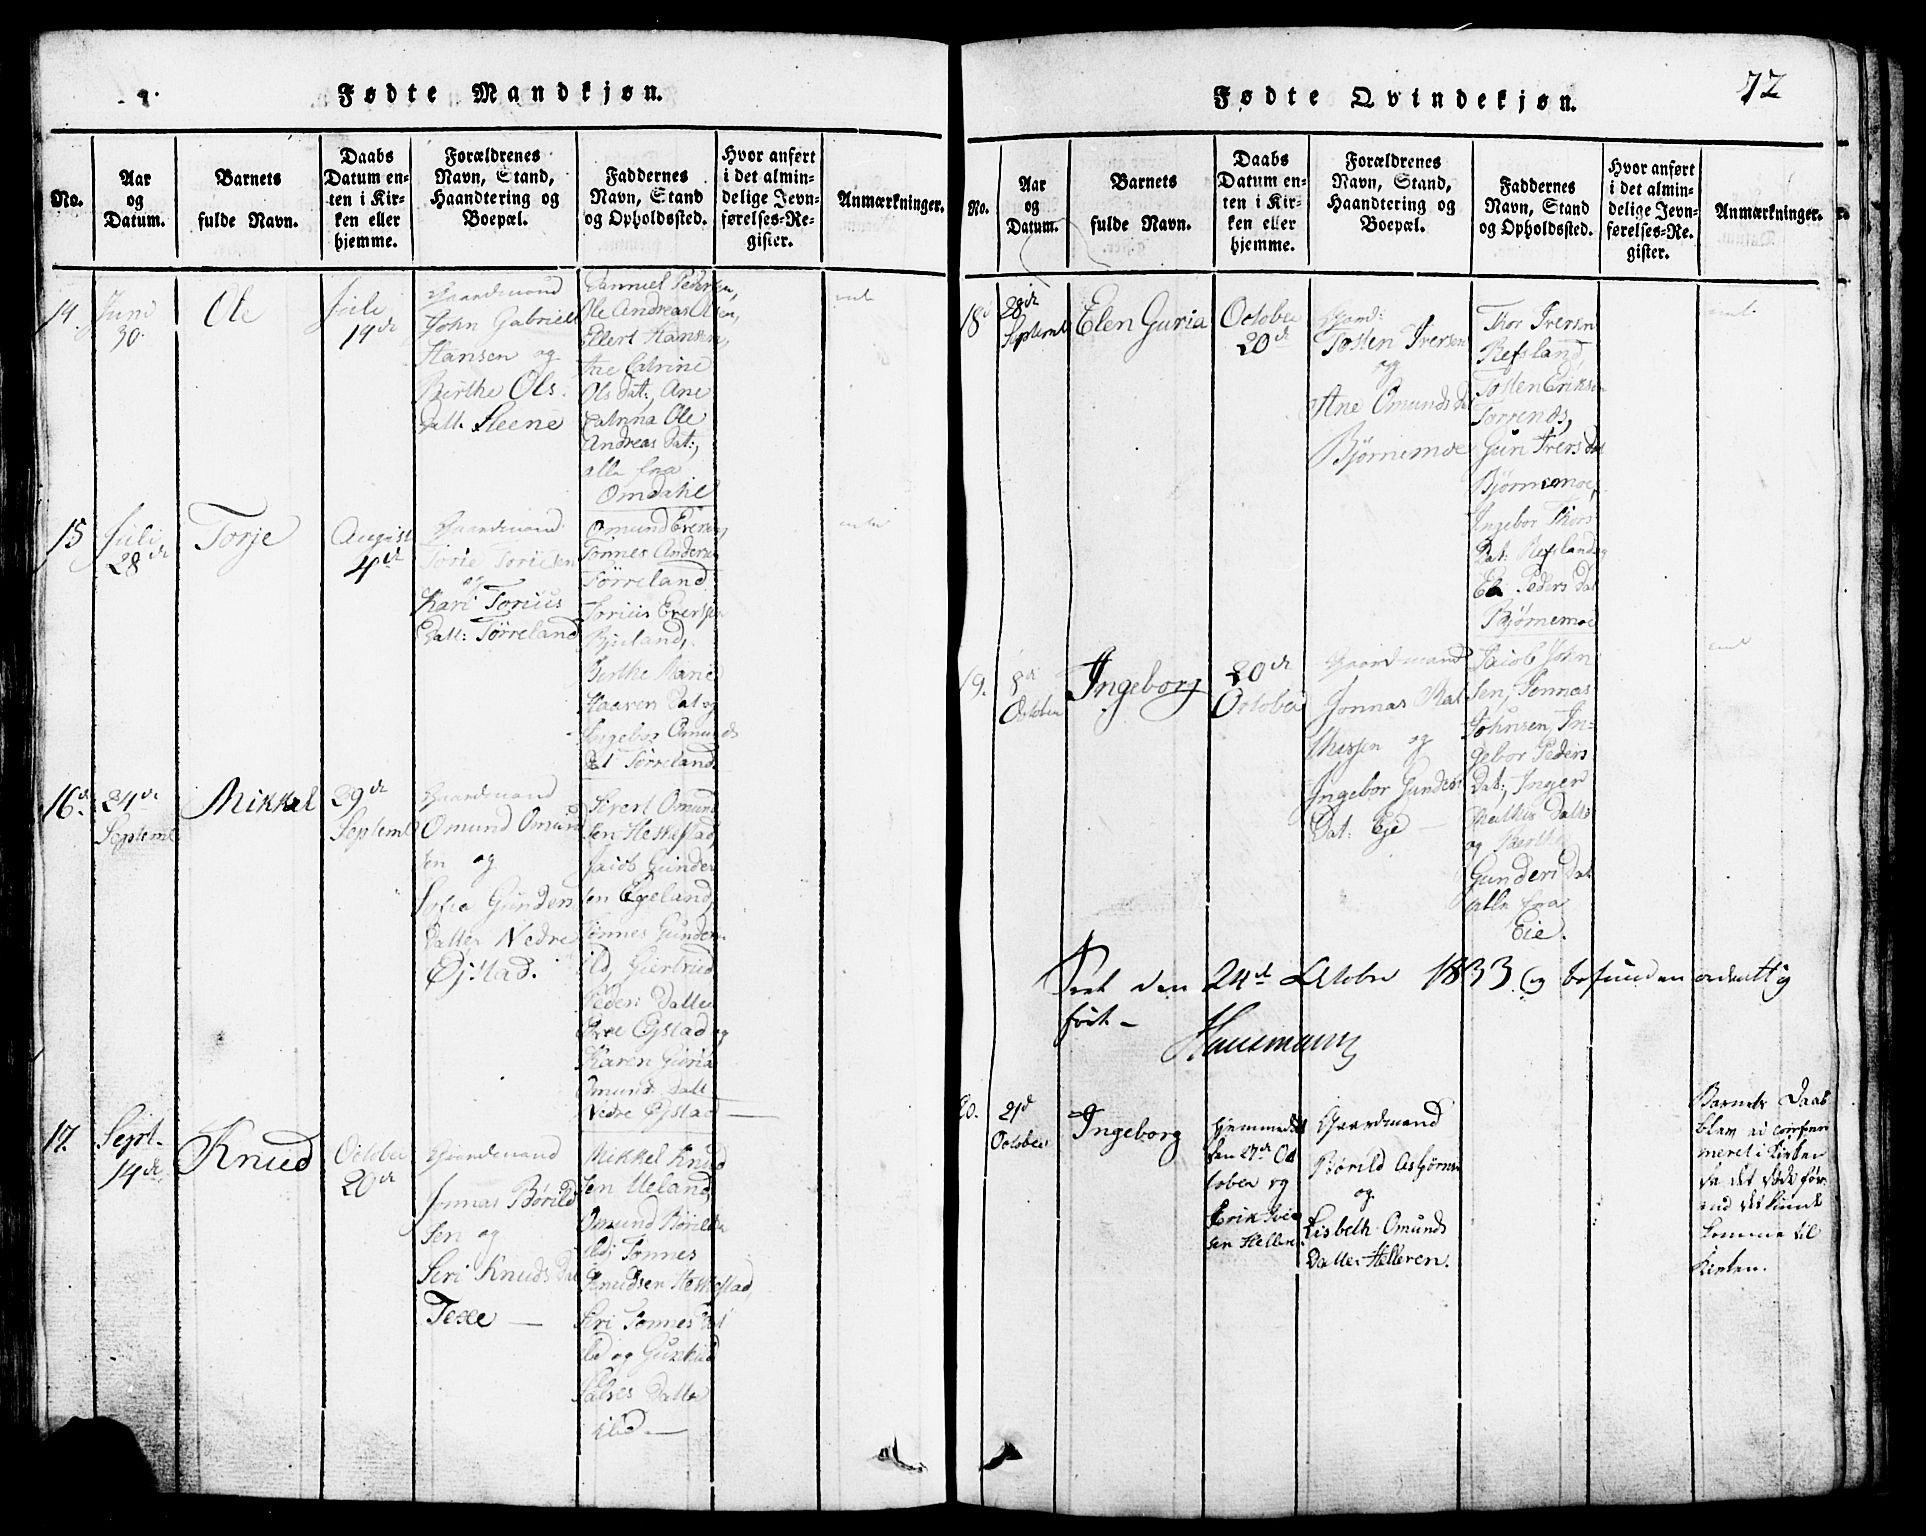 Fødte Mandkjøn.
No.
Aar
og
Datum.
Barnets
fulde Navn.
Daabs
Datum en-
ten i Kir-
ken eller
hjemme.
Forældrenes
Navn, Stand,
Haandtering og
Boepæl.
Faddernes
Navn, Stand
og Opholdssted.
Hvor anført
i det almin-
delige Jevn-
førelses-Re-
gister.
Anmærkninger.
14.
Juni
30.
Ole
Juli
14de
Gaardmand
John Gabriel
Hansen og
Berthe Ols
Datt. Sleene
Samuel Pedersen,
Ole Andreas Olsen,
Ellert Hansen,
Ane Catrine
Olsdat:, Ane
Catrina Ole
Andreas Dat:,
alle fra
Omdahl
15
Juli
28de
Torje
August
4de
Gaardmand
Torie Toriesen
og
Kari Torius
Datt: Tørreland
Omund Eversen,
Tønnes Anders
Tørreland
Torius Eversen
Bjuland,
Berthe Marie
Haaren Dat og
Ingebor Omunds
Dat Tørreland
16de
24de
Septemb
Mikkel
29de
Septemb
Gaardmand
Omund Omund
sen og
Sofia Gunders
Datter Nedre
Øjstad.
Sivert Omund
sen Heskestad,
Jacob Gunder
sen Egeland,
Tønnes Gunder
ild, Giertrud
Peders Datter
Øvre Øjstad og
Karen Guria
Omunds Datt
Nedre Øjstad
17.
Sept.
14de
Knud
October
20de
Gaardmand
Jonnas Børild
sen og
Seri Knuds Dat
Texe
Mikkel Knud
sen Ueland,
Omund Børildse
ild: Tønnes
Knudsen Heskestad,
Seri Tønnes Dat
ild og Gurild
Salves Datter
ild
72
Fødte Qvindekjøn.
No.
Aar
og
Datum.
Barnets
fulde Navn.
Daabs
Datum en-
ten i Kir-
ken eller
hjemme.
Forældrenes
Navn, Stand,
Haandtering og
Boepæl.
Faddernes
Navn, Stand
og Opholdssted.
Hvor anført
i det almin-
delige Jevn-
førelses-Re-
gister.
Anmærkninger.
18
28de
Septemb
Elen Guria
October
20de
Gaard:
Tosten Iversen
og
Ane Omunds dat
Bjørnemoe
Thor Iversen
Refsland,
Tosten Eriksen
Torrends,
Guri Ivers dat
Bjørnemoe,
Ingebor Thors
Dat: Refsland og
Peders Dat
Bjørnemoe
19.
8de
October
Ingeborg
20de
October
Gaardmand
Jonnas Mat
thissen og
Ingebor Gunders
Dat: Eje
Jacob John
sen, Jonnas
Johnsen, In=
gebor Peders
Dat:, Inger
Mattis Datte
og Berthe
Gunders Dat
alle fra
Eie.
Seet den 24de Octobr 1833 og befunden ordentlig
ført.
Hausmann
20.
21de
October
Ingeborg
Hjemmedøbt
den 27de Oc
tober og
Erik Iver
sen Helleren
Gaardmand
Børild Asbjørnsen
og
Lisbeth Omunds
Datter Helleren.
Barnets Daab
blev ei confir
meret i Kirken
da det døde før
end det kunde
komme til
Kirken.